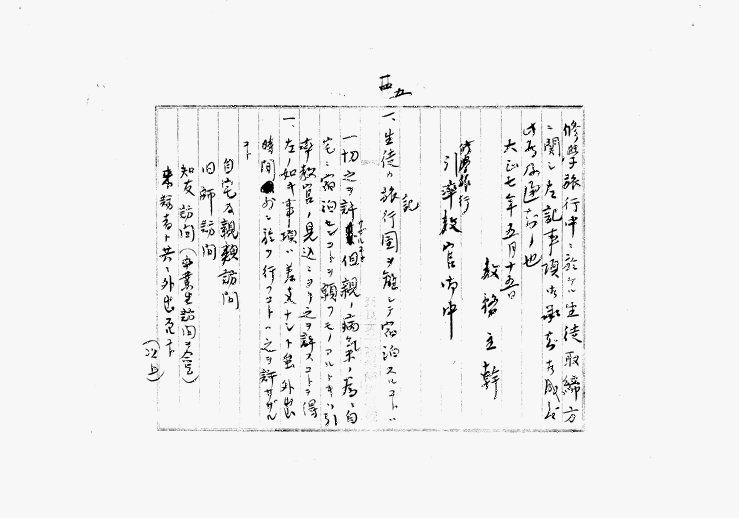 四五
修學旅行中ニ於ケル生徒取締方
ニ関シ左記事項御承知相成度
此段及通知候也
大正七年五月十五日
教務主幹
修學旅行
引率教官御中
記
一、生徒ガ旅行團ヲ離レテ宿泊スルコトハ
一切之ヲ許サザルコト但親ノ病氣ノ為ニ自
宅ニ宿泊センコトヲ願フモノアルトキハ引
率教官ノ見込ニヨリ之ヲ許スコトヲ得
一、左ノ如キ事項ハ差支ナント虽外出
時間 於テ行フコトハ之ヲ許サザル
コト
自宅及親類訪問
旧師訪問
知友訪問(卒業生訪問ヲ含ム)
来訪者ト共ニ外出
(以上)